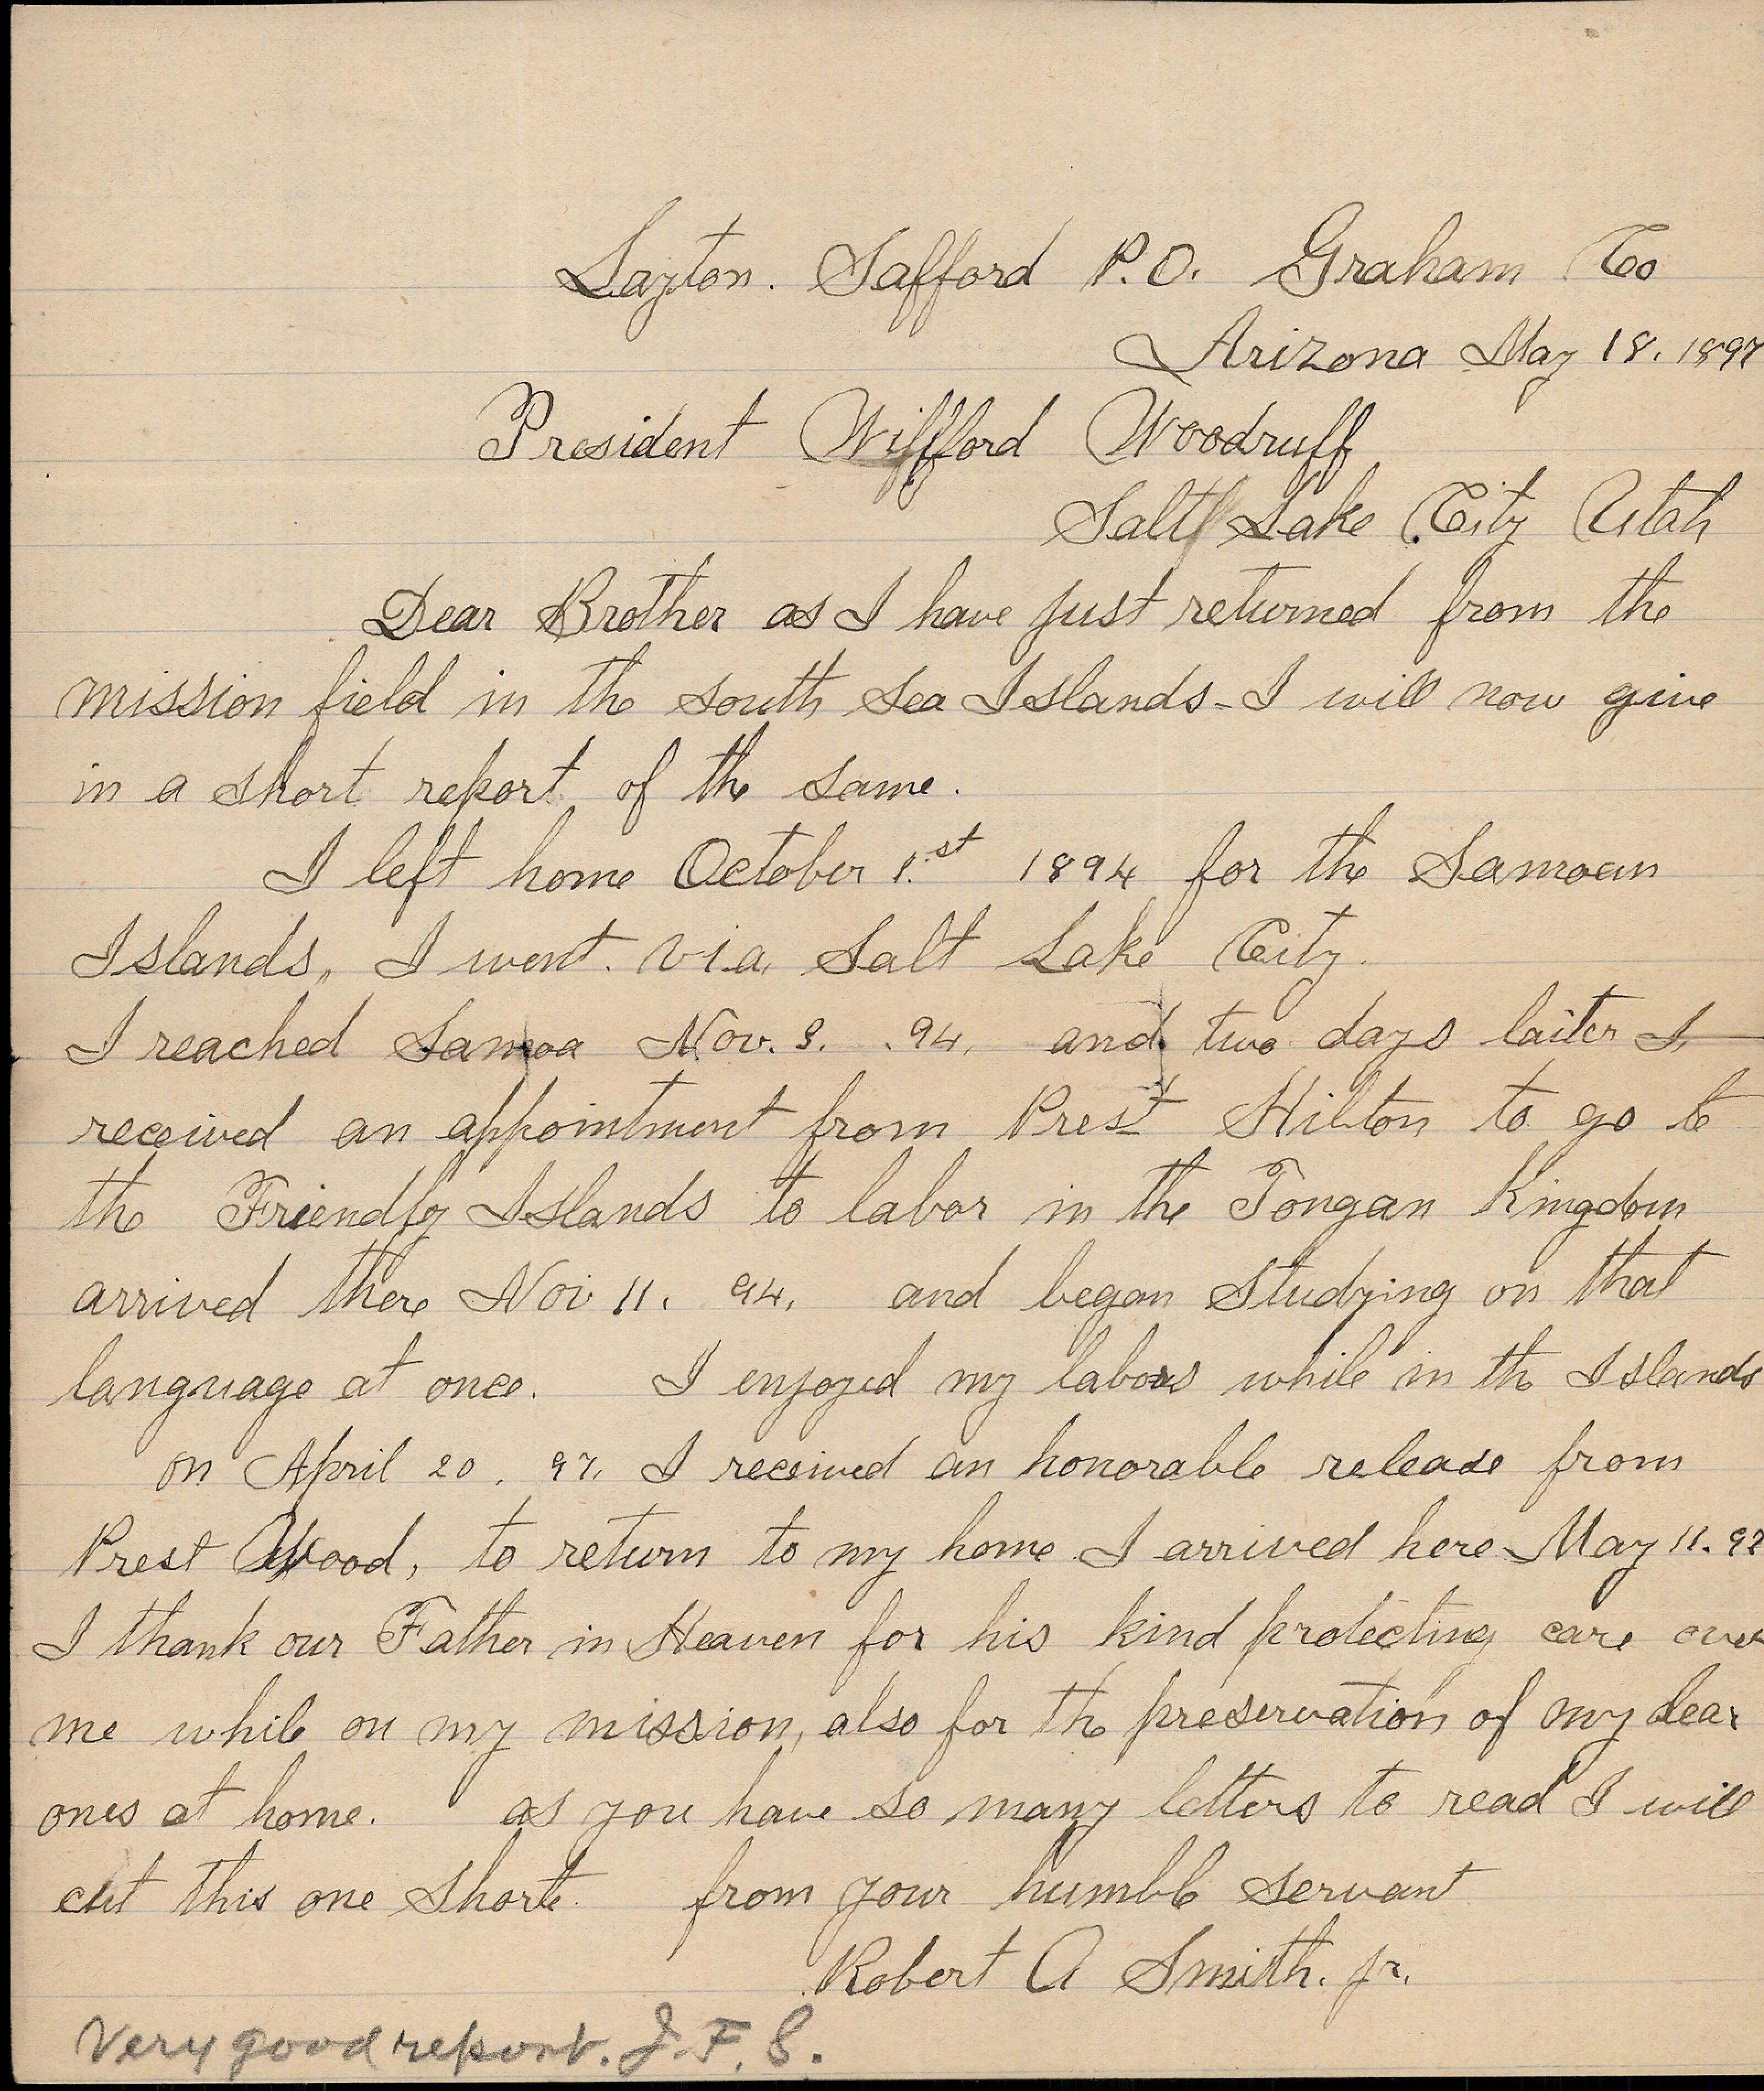 Layton. Safford P.O. Graham Co
Arizona May 18. 1897
President Willford Woodruff
Salt Lake City Utah
Dear Brother as I have just returned from the
mission field in the south Sea Islands - I will now give
in a short report of the same.
I left home October 1.st 1894 for the Samoan
Islands, I went. via, Salt Lake City.
I reached Samoa Nov. 8. .94. and two days laiter I
received an appointment from Prest Hilton to go to
the Friendly Islands to labor in the Tongan Kingdom
arrived there Nov 11. 94. and began Studying on that
language at once. I enjoyed my labors while in the Islands
on April 20. 97. I received an honorable release from
Prest Wood, to return to my home. I arrived here May 11. 97
I thank our Father in Heaven for his kind protecting care over
me while on my mission, also for the preservation of my dear
ones at home. as you have so many letters to read I will
cut this one Shorte. from your humble servant
Robert A Smith. jr.
Very good report. J. F. S.